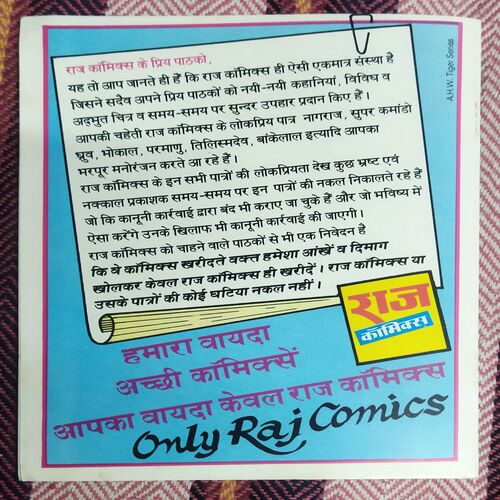 राज कॉमिक्स के प्रिय पाठको,
यह तो आप जानते ही हैं कि राज कॉमिक्स ही ऐसी एकमात्र संस्था है
जिसने सदैव अपने प्रिय पाठकों को नयी-नयी कहानियां, विविध व
अद्भुत चित्र व समय-समय पर सुन्दर उपहार प्रदान किए हैं।
आपकी चहेती राज कॉमिक्स के लोकप्रिय पात्र नागराज, सुपर कमांडो
ध्रुव, भोकाल, परमाणु, तिलिस्मदेव, बांकेलाल इत्यादि आपका
भरपूर मनोरंजन करते आ रहे हैं।
राज कॉमिक्स के इन सभी पात्रों की लोकप्रियता देख कुछ भ्रष्ट एवं
नक्काल प्रकाशक समय-समय पर इन पात्रों की नकल निकालते रहे हैं
जो कि कानूनी कार्रवाई द्वारा बंद भी कराए जा चुके हैं और जो भविष्य में
ऐसा करेंगे उनके खिलाफ भी कानूनी कार्रवाई की जाएगी।
राज कॉमिक्स को चाहने वाले पाठकों से भी एक निवेदन है
कि वे कॉमिक्स खरीदते वक्त हमेशा आंखें व दिमाग
खोलकर केवल राज कॉमिक्स ही खरीदें। राज कॉमिक्स या
उसके पात्रों की कोई घटिया नकल नहीं।
A.H.W. Tiger Series
राज
कॉमिक्स
हमारा वायदा
अच्छी कॉमिक्सें
आपका वायदा केवल राज कॉमिक्स
Only Raj Comics